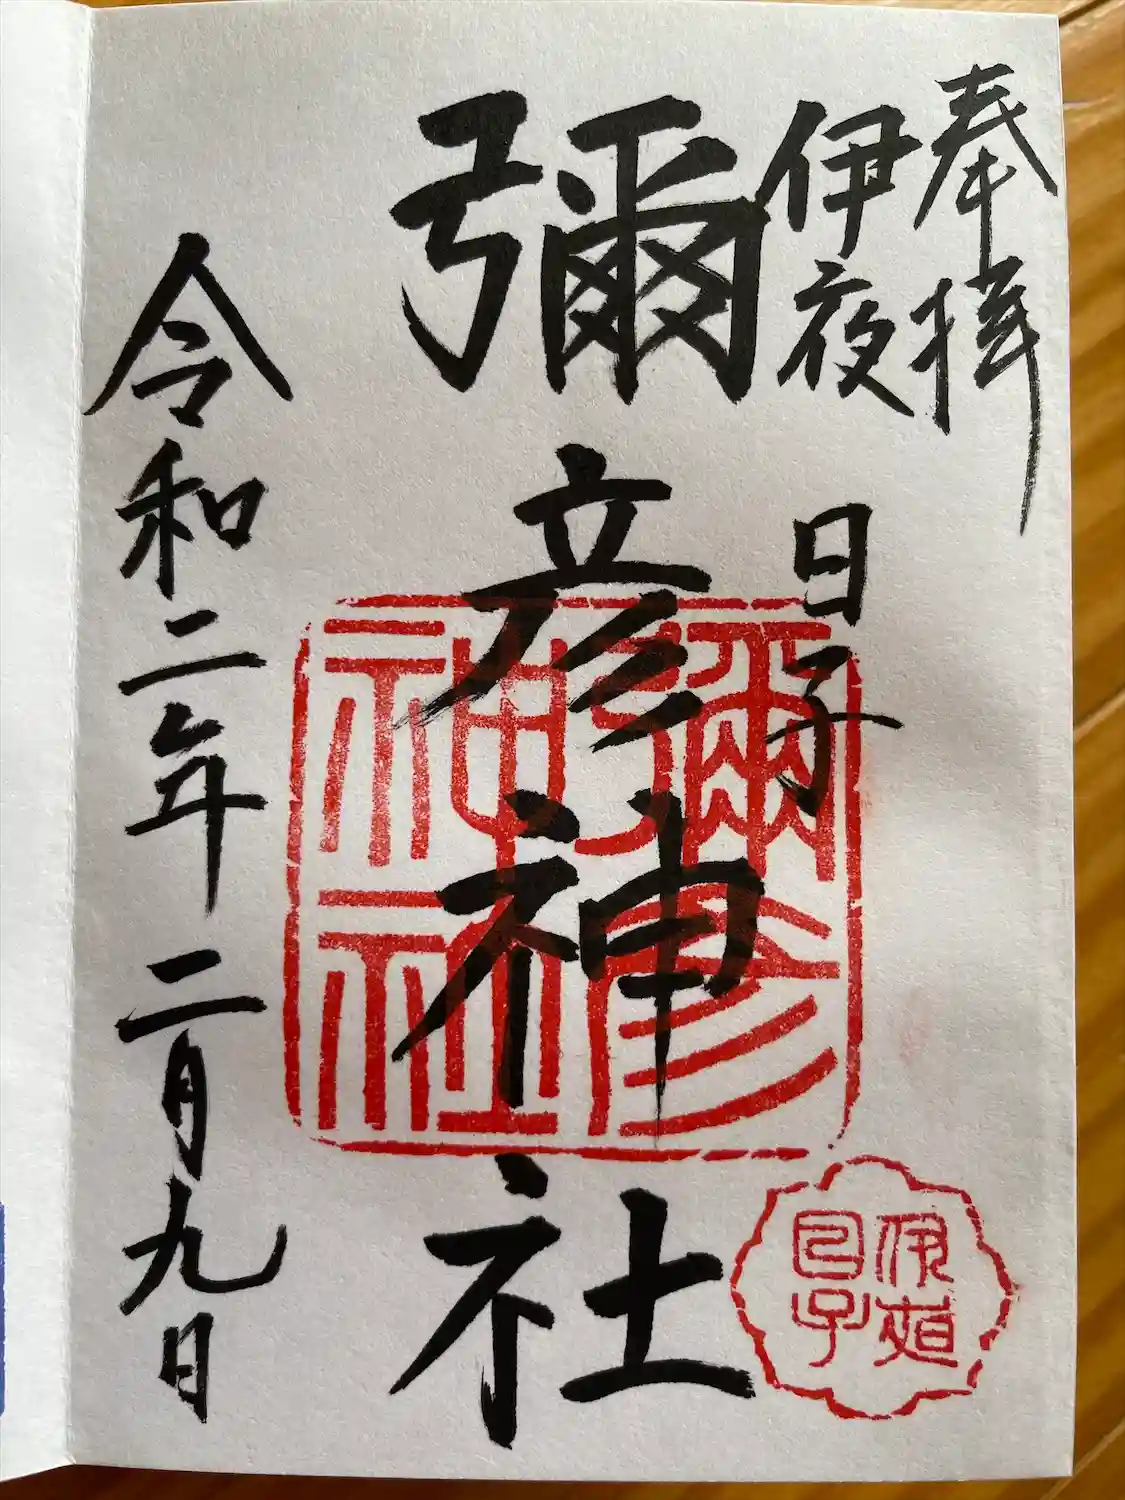 奉拝
伊夜日子
彌彦神社
令和二年二月九日
彌彦神社
伊夜日子